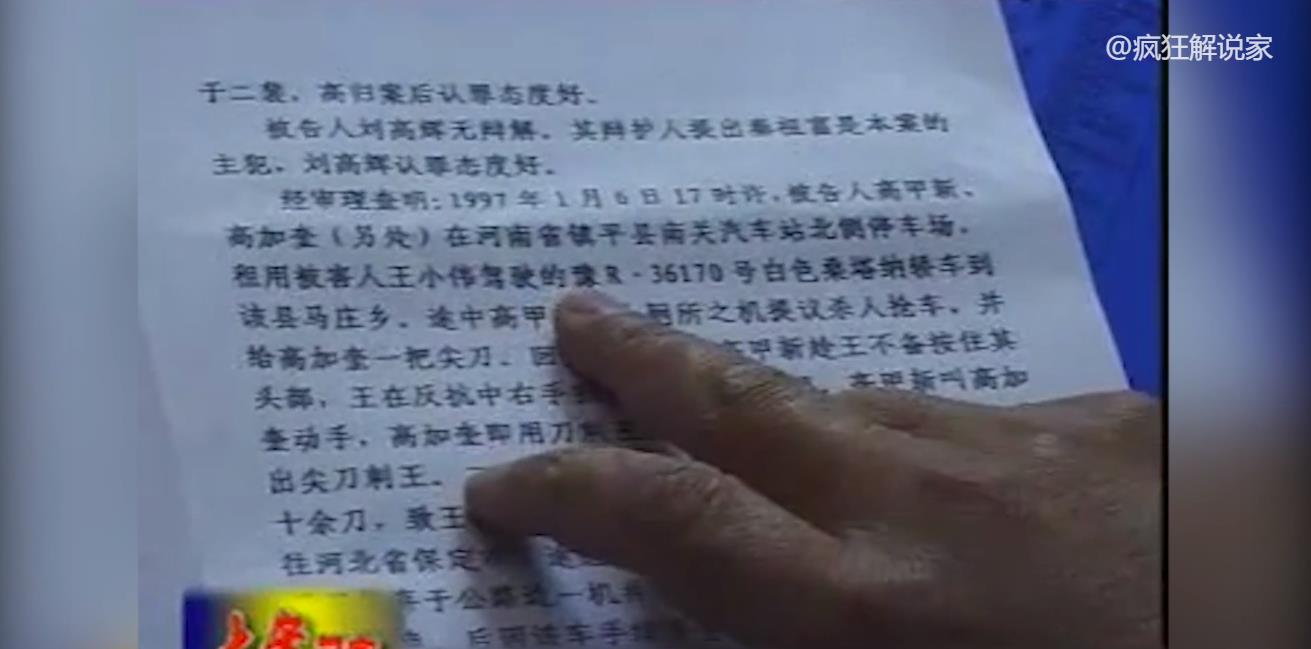 @疯狂解说家
于二袭，高归案后认罪态度好。
被告人刘高辉无辩解，其辩护人提出秦祖富是本案的
主犯，刘高辉认罪态度好。
经审理查明：1997 年 1 月 6 日 17 时许，被告人高甲新、
高加奎（另处）在河南省镇平县南关汽车站北侧停车场，
租用被害人王小伟驾驶的豫R·36170号白色桑塔纳轿车到
该县马庄乡，途中高甲 厕所之机提议杀人抢车，并
给高加奎一把尖刀，回 高甲新趁王不备按住其
头部，王在反抗中右手 高甲新叫高加
奎动手，高加奎即用刀
出尖刀刺王，
十余刀，致王
往河北省保定
车于公路边一机
后因该车手续
大案